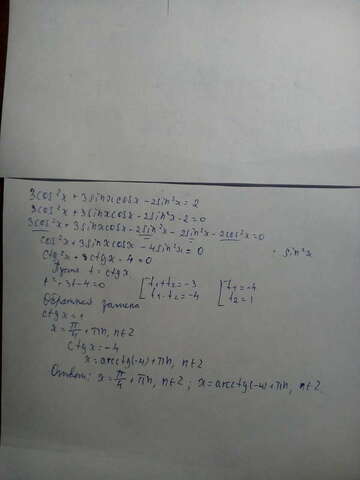 3cos²x + 3sinxcosx - 2sin²x = 2
3cos²x + 3sinxcosx - 2sin²x - 2 = 0
3cos²x + 3sinxcosx - 2sin²x - 2sin²x - 2cos²x = 0
cos²x + 3sinxcosx - 4sin²x = 0 : sin²x
ctg²x + 3ctgx - 4 = 0
Пусть t = ctgx
t² + 3t - 4 = 0 [t₁ + t₂ = -3 [t₁ = -4
t₁ · t₂ = -4 t₂ = 1
Обратная замена
ctgx = 1
x = π/4 + πn, n∈Z
ctgx = -4
x = arcctg(-4) + πn, n∈Z
Ответ: x = π/4 + πn, n∈Z ; x = arcctg(-4) + πn, n∈Z